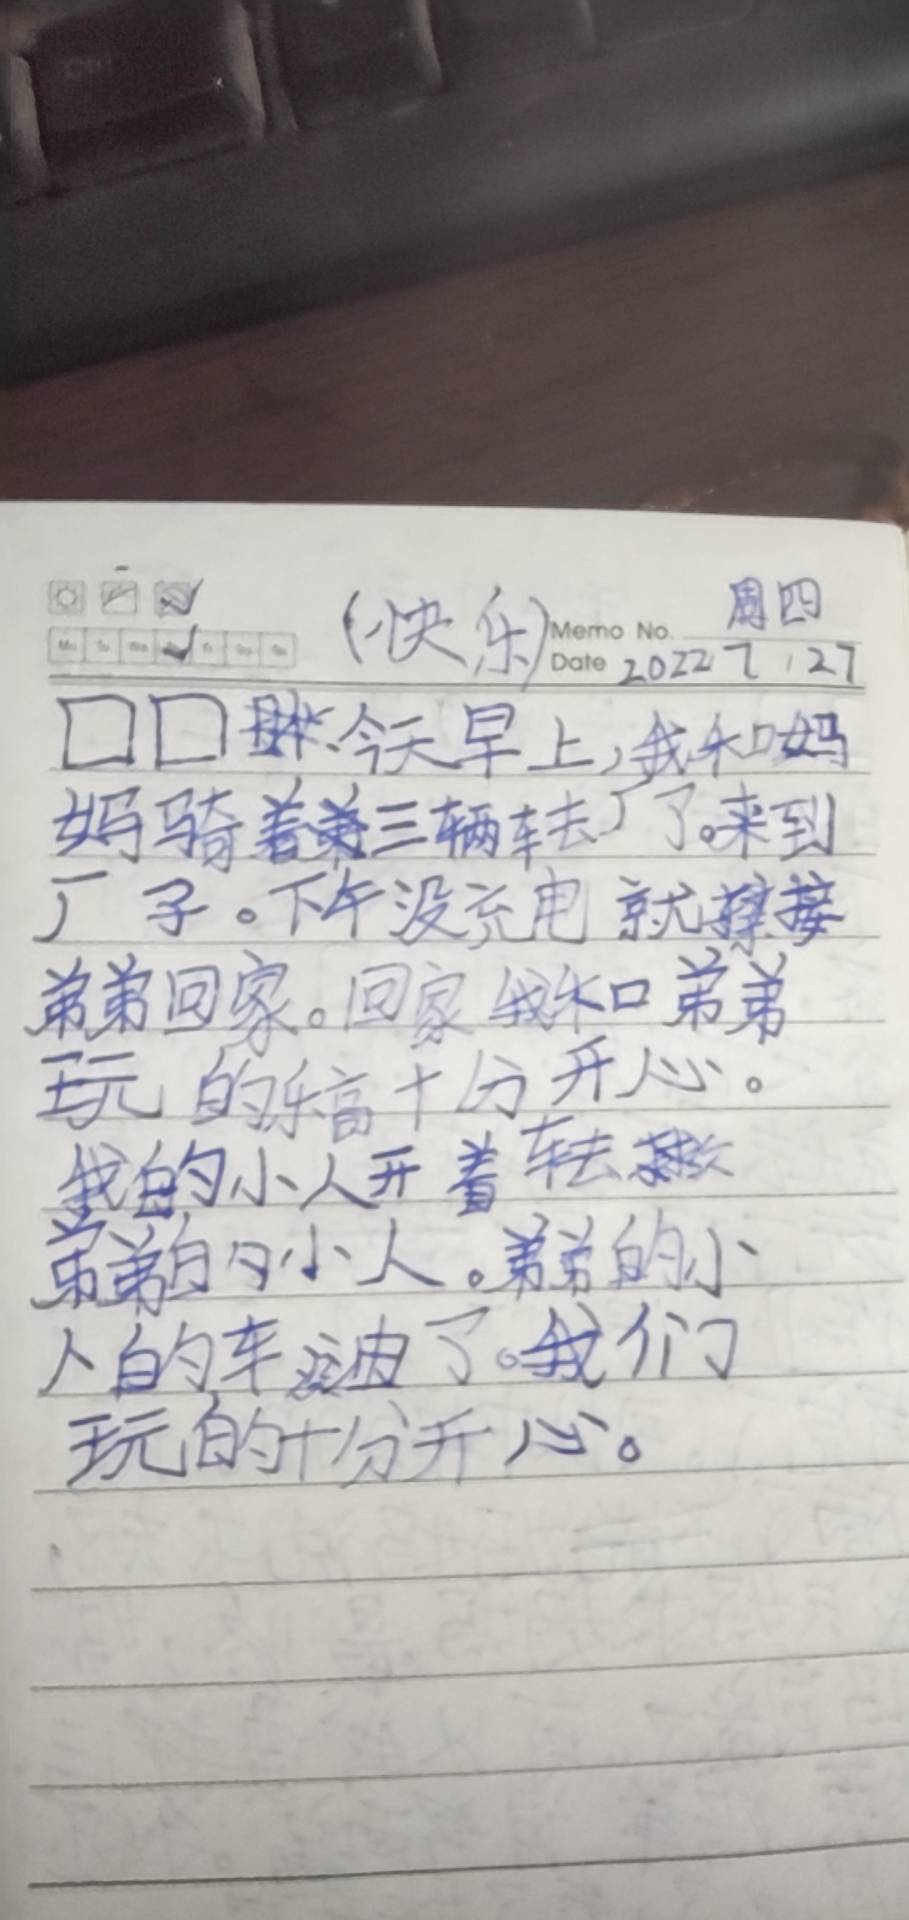 (快乐) Memo No. 周四
Date 2022 7 27
今天早上,我和妈
妈骑着第三辆车去厂了。来到
厂子。下午没充电就接
弟弟回家。回家我和弟弟
玩的乐高十分开心。
我的小人开着车去救
弟弟的小人。弟弟的小
人的车没油了。我们
玩的十分开心。